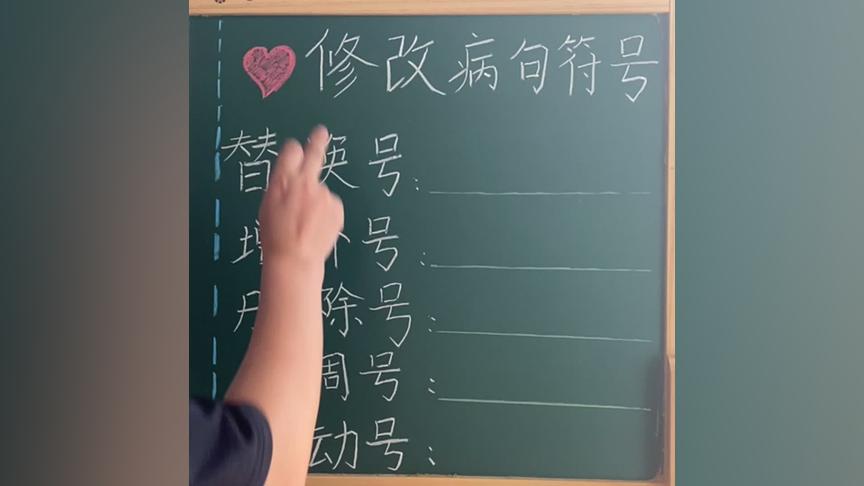 修改病句符号
替换号:
增补号:
删除号:
调号:
动号: